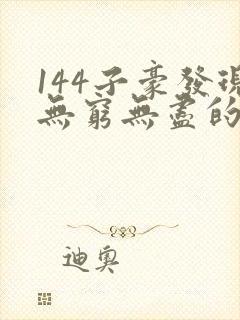 144子豪發現
無窮無盡的
迪奧